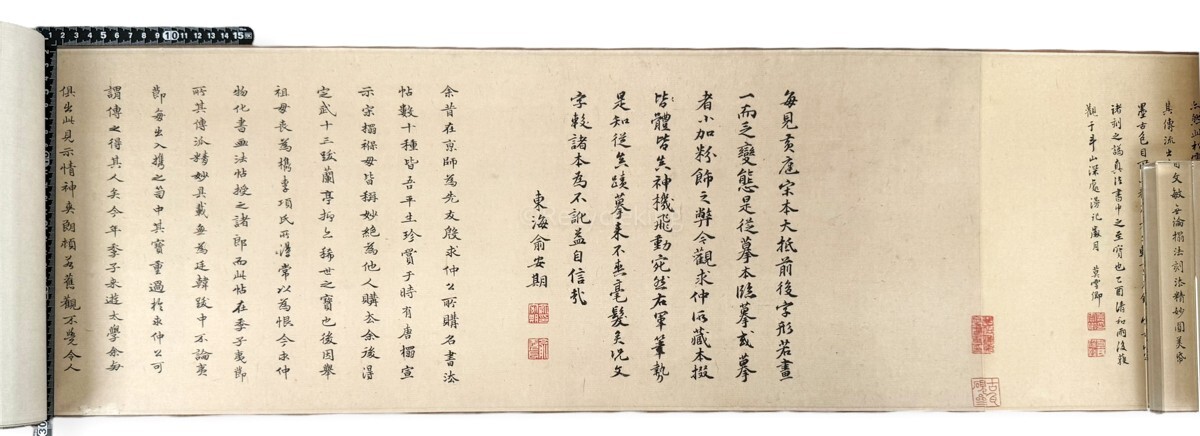 墨古色目
諸刻之譌真法書中之至寶也乙酉清和雨後雅
觀于平山深處漫記歲月 莫雲卿
文敏云論搨法詞法精妙圓美
每見黃庭宋本大抵前後字形若畫
一而乏變態是從摹本臨摹或摹
者小加粉飾之弊今觀求仲所藏本掇
皆體皆生神機飛動宛然右軍筆勢
是知從真蹟摹來不無毫髮矣況文
字較諸本為不訛益自信哉
東海俞安期
余昔在京師為先友殷求仲公所購名書法
帖數十種皆吾平生珍賞于時有唐搨宣
示宋搨褉毋皆稱妙絕為他人購去余後得
定武十三跋蘭亭拆上稀世之寶也後因舉
祖毋喪為檇李項氏所得常以為恨今求仲
物化書畫法帖授之諸郎而此帖在季子夷郎
所其傳派精妙具載無為廷韓跋中不論夷
郎每出入攜之笥中其寶重過於求仲公可
謂傳之得其人矣今年季子來遊太學余每
俱出此見示情神爽朗頓為舊觀不覺令人